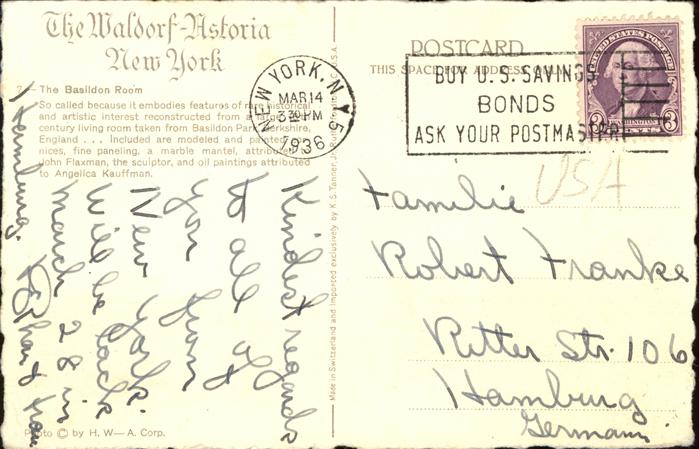 The Waldorf-Astoria
New York
2—The Basildon Room
So called because it embodies features of rare historical
and artistic interest reconstructed from a large
century living room taken from Basildon Park, Berkshire,
England ... included are modeled and painted
nices, fine paneling, a marble mantel, attributed to
John Flaxman, the sculptor, and oil paintings attributed
to Angelica Kauffman.
Kindest regards
to all of
you from
New York.
Will be back
March 28 in
Hamburg.
Photo © by H. W—A. Corp.
Made in Switzerland and Imported exclusively by K. S. Tanner, Jr. U.S.A.
POSTCARD
THIS SPACE FOR ADDRESS ONLY
NEW YORK, N.Y. 5
MAR 14
3 30 PM
1936
BUY U.S. SAVINGS
BONDS
ASK YOUR POSTMASTER
UNITED STATES POSTAGE
WASHINGTON
3 3
USA
Familie
Robert Franke
Ritter Str. 106
Hamburg
Germany